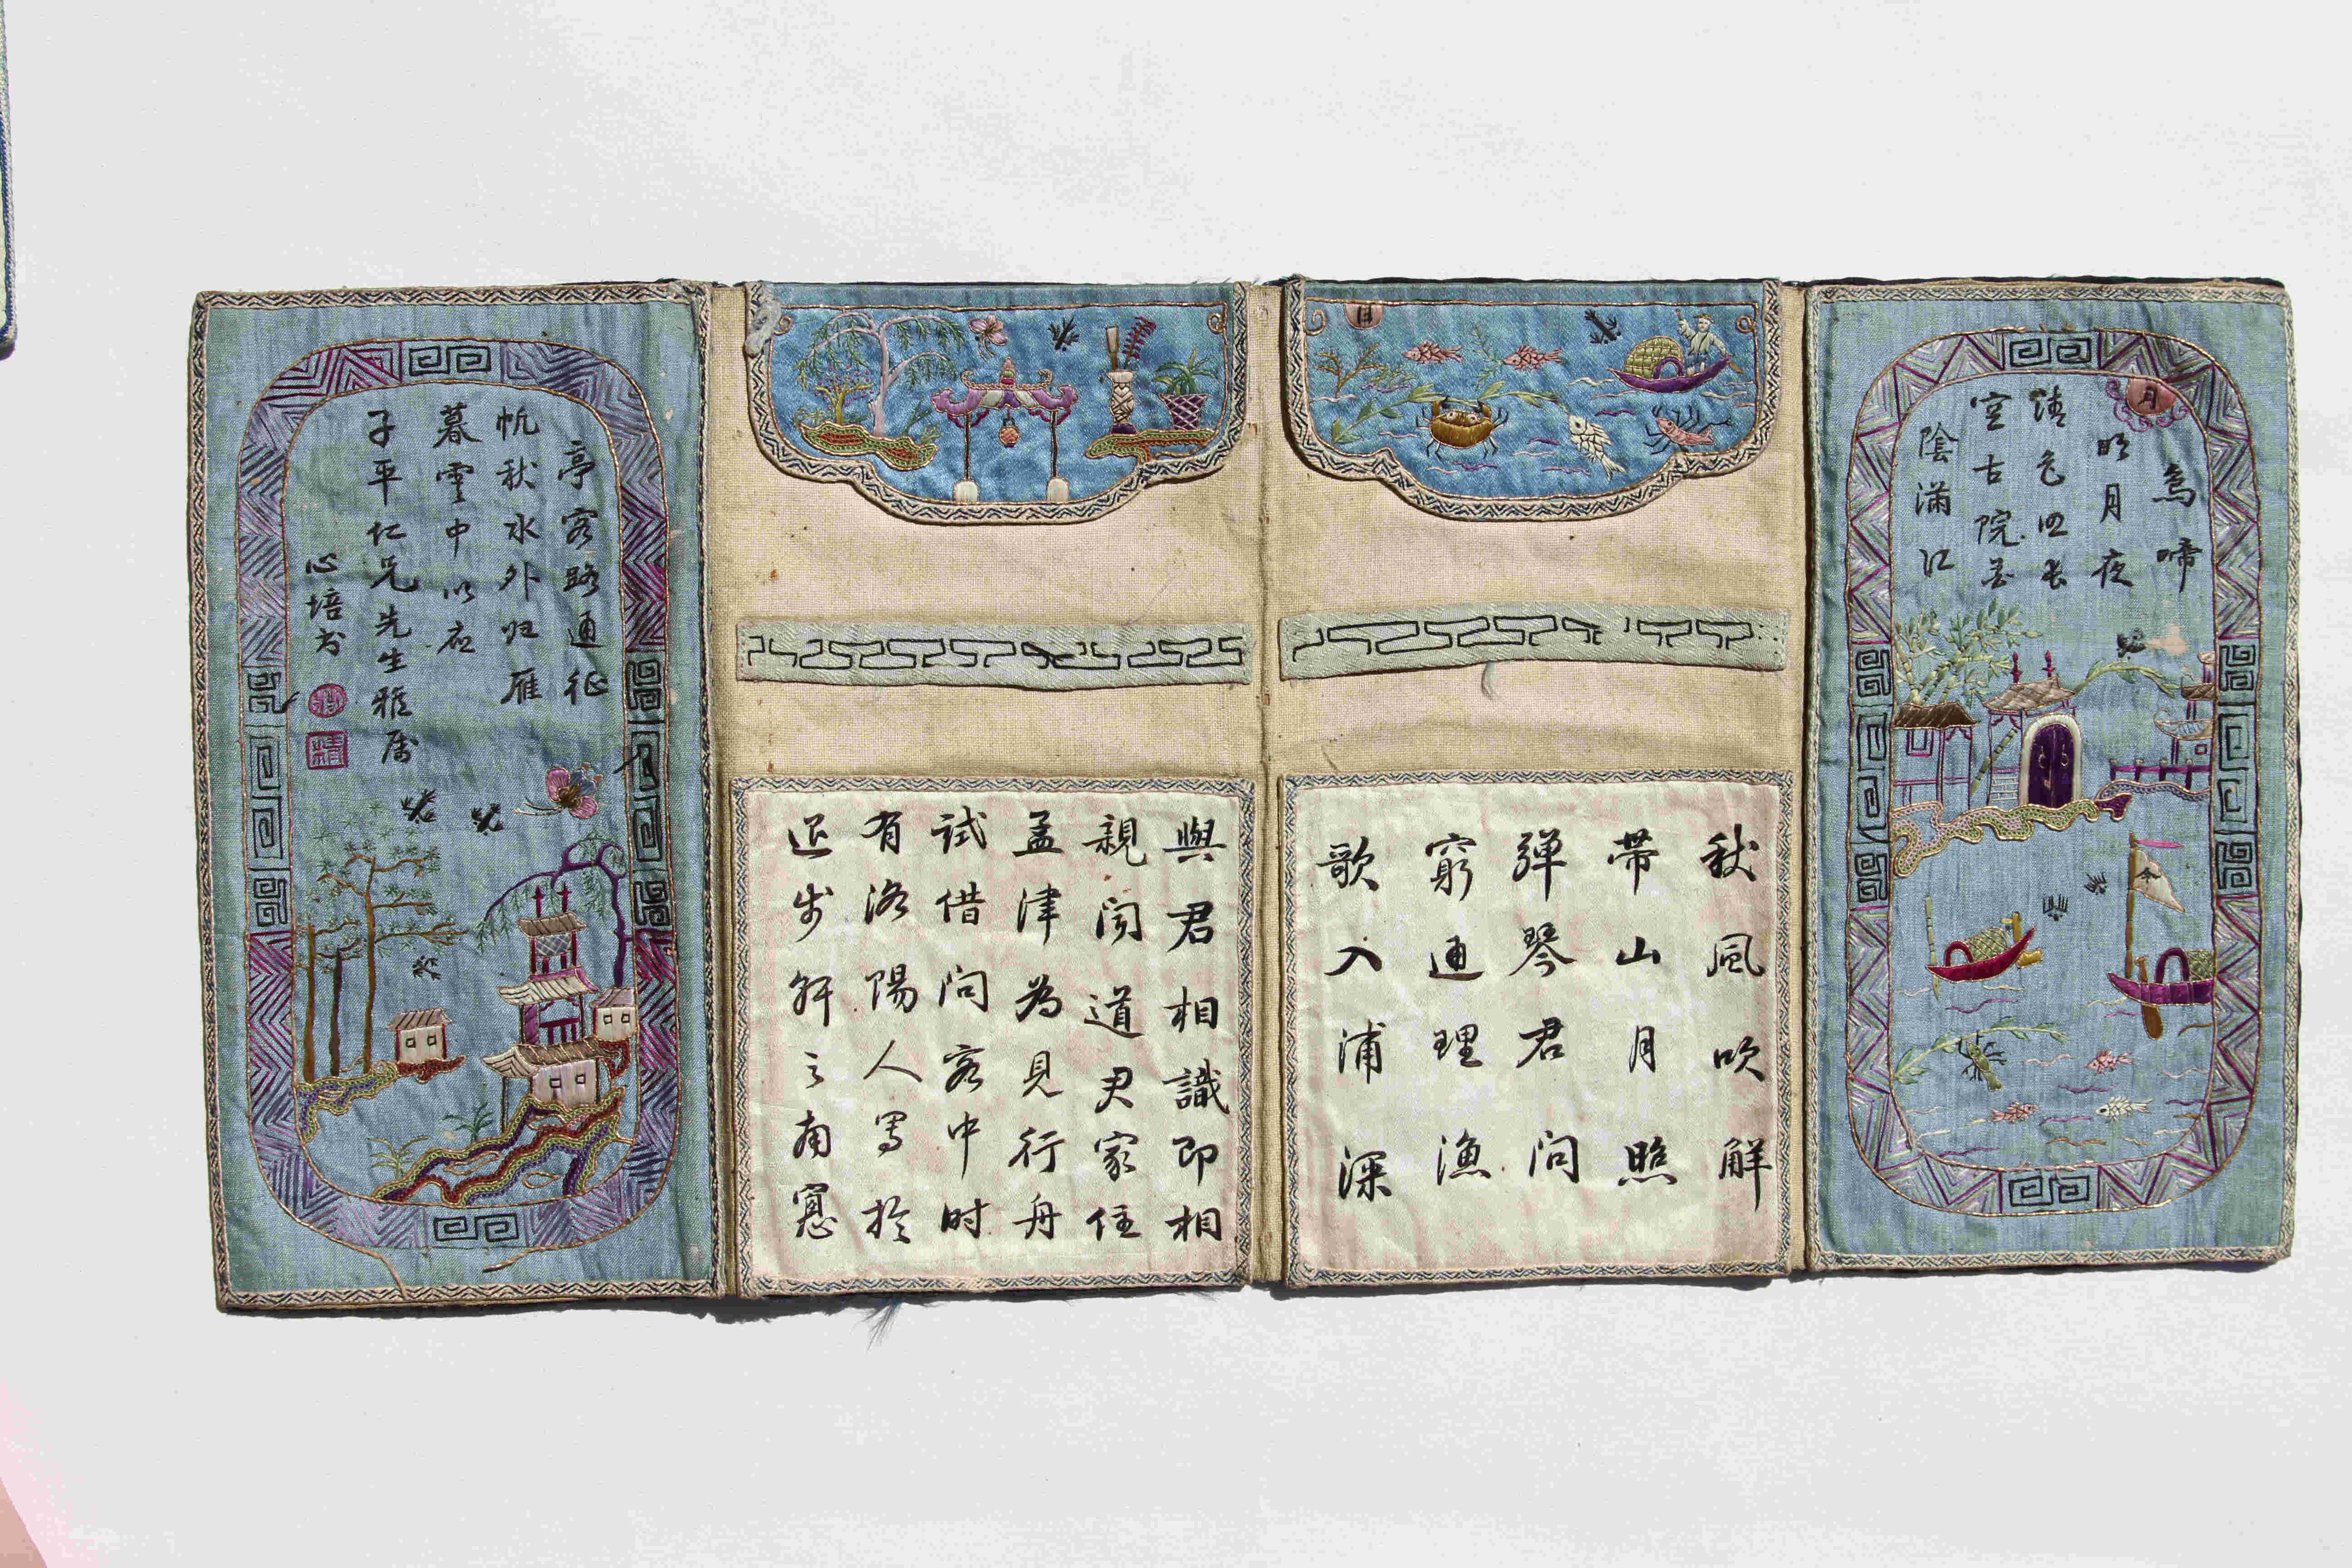 月
烏啼
明月夜
清色四长
空古院苔
陰滿江
月
秋風吹解
帶山月照
彈琴君問
窮通理漁
歌入浦深
與君相識即相
親聞道君家住
孟津為見行舟
試借問客中时
有洛陽人寫於
退步軒之南窗
亭客路通征
帆秋水外归雁
暮雲中以应
子平仁兄先生雅属
心培书